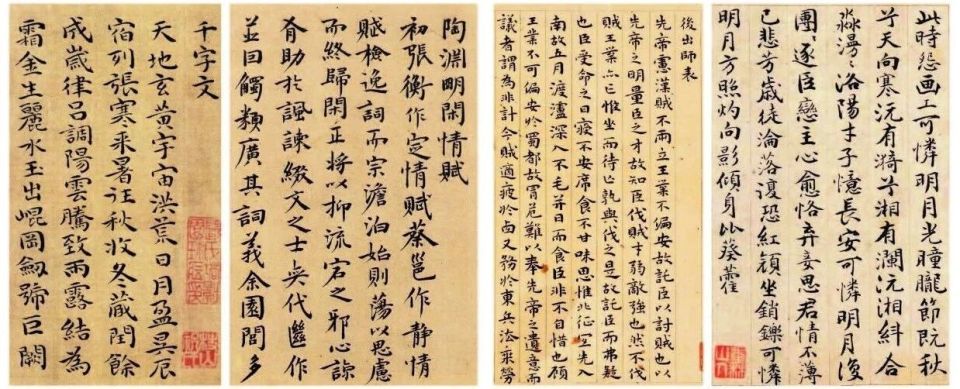 此時怨画工可憐明月光曈朧節既秋
兮天向寒沅有漪兮湘有瀾沅湘糾合
淼漫漫洛陽才子憶長安可憐明月復
團團逐臣戀主心愈恪弃妾思君情不薄
已悲芳歲徒淪落復恐紅顔坐銷鑠可憐
明月方照灼向影傾身比葵藿
後出師表
先帝慮漢賊不兩立王業不偏安故託臣以討賊也以
先帝之明量臣之才故知臣伐賊才弱敵強也然不伐
賊王業亦亡惟坐而待亡孰與伐之是故託臣而弗疑
也臣受命之日寢不安席食不甘味思惟北征宜先入
南故五月渡瀘深入不毛并日而食臣非不自惜也顧
王業不可偏安於蜀都故冒危難以奉先帝之遺意而
議者謂為非計今賊適疲於西又務於東兵法乘勞
陶淵明閑情賦
初張衡作定情賦蔡邕作静情
賦檢逸詞而宗澹泊始則蕩以思慮
而終歸閑正將以抑流宕之邪心諒
有助於諷諫綴文之士奕代繼作
並因觸類廣其詞義余園閭多
千字文
天地玄黄宇宙洪荒日月盈昃辰
宿列張寒来暑往秋收冬蔵閏餘
成歲律吕調陽雲騰致雨露結為
霜金生麗水玉出崐岡劔號巨闕